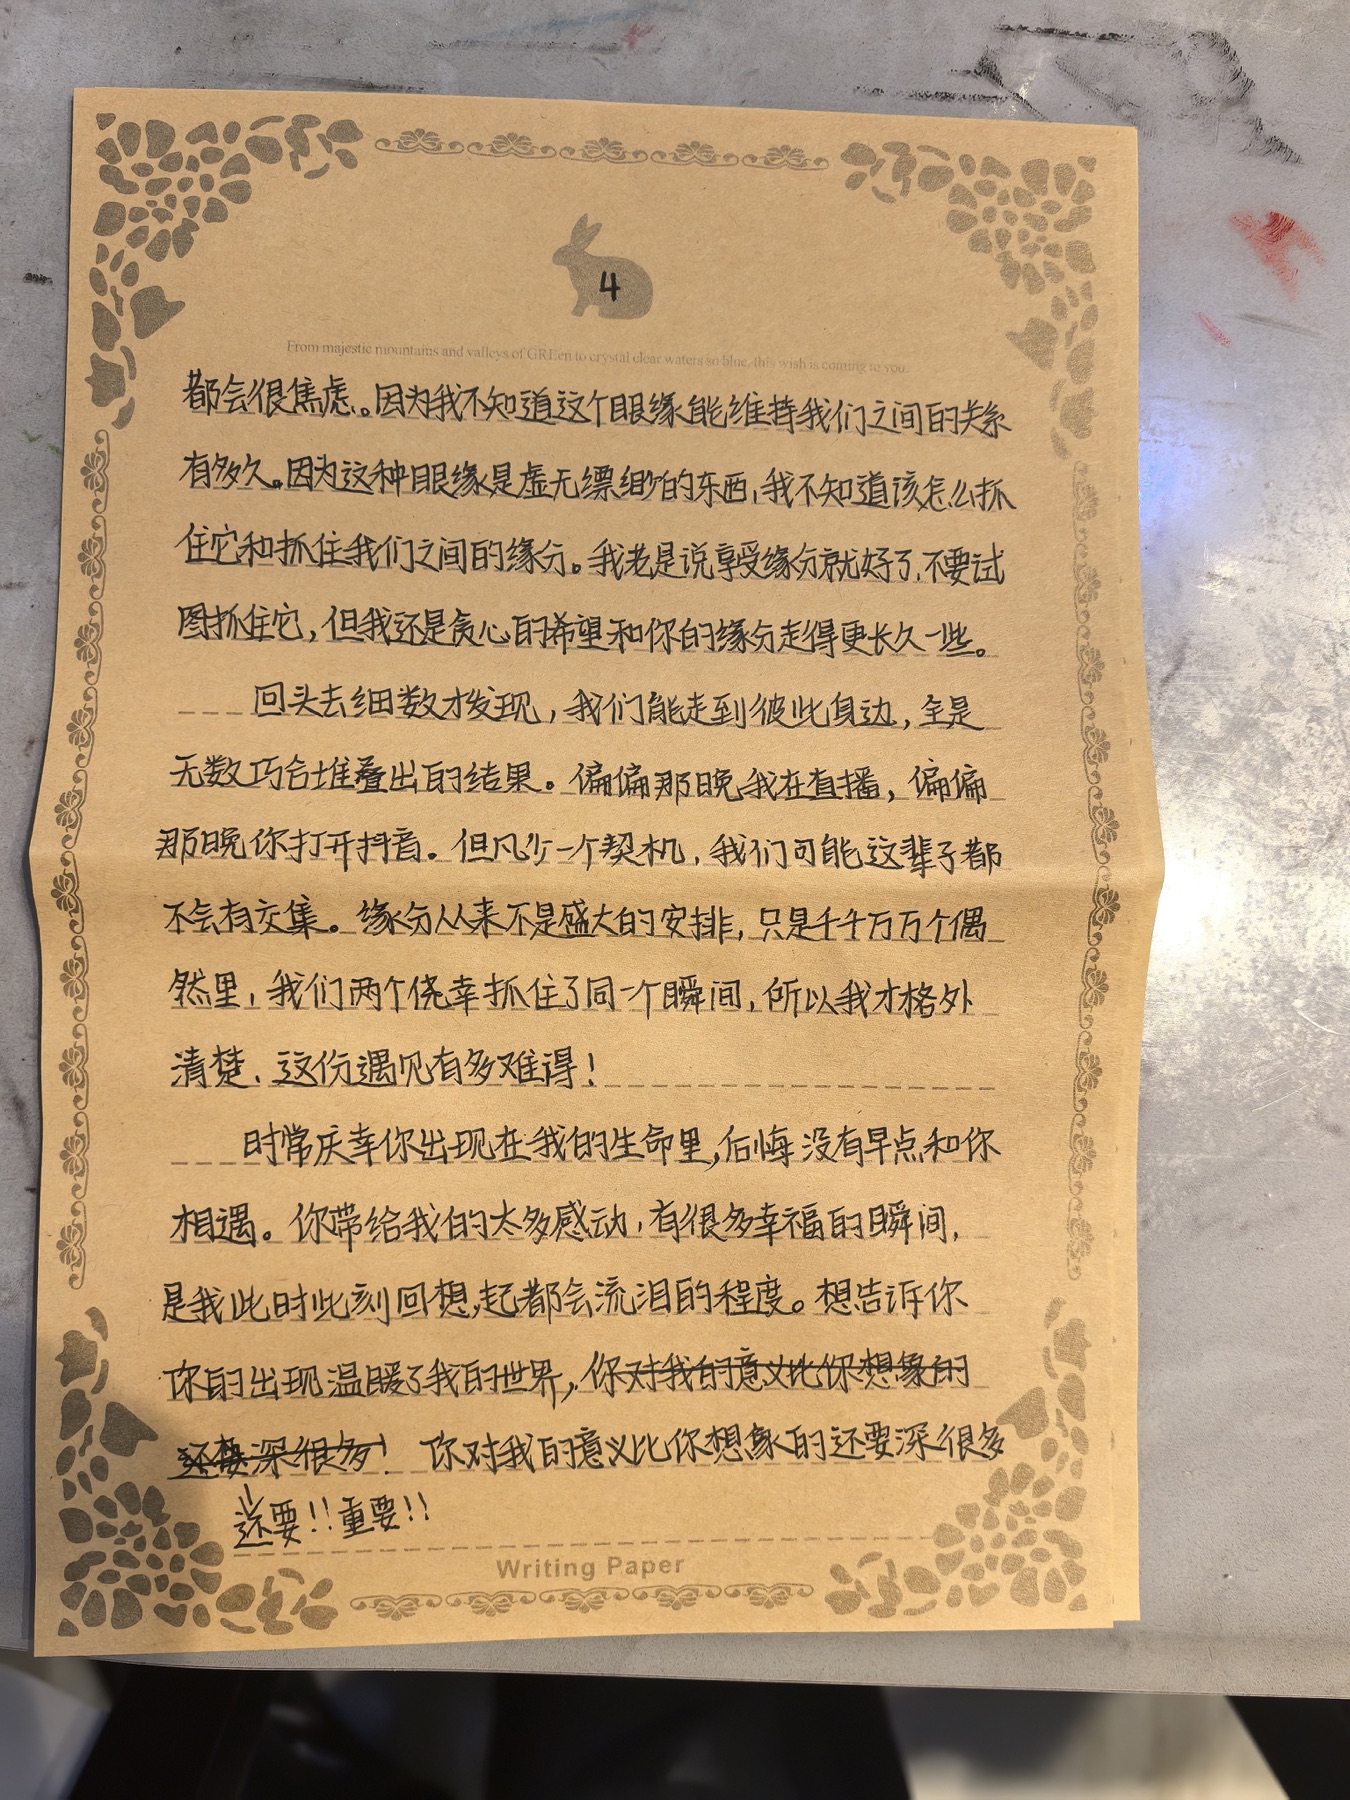 4
From majestic mountains and valleys of GREen to crystal clear waters so blue, this wish is coming to you.
都会很焦虑。因为我不知道这个眼缘能维持我们之间的关系
有多久。因为这种眼缘是虚无缥缈的东西，我不知道该怎么抓
住它和抓住我们之间的缘分。我老是说享受缘分就好了，不要试
图抓住它，但我还是贪心的希望和你的缘分走得更长久一些。
回头去细数才发现，我们能走到彼此身边，全是
无数巧合堆叠出的结果。偏偏那晚我在直播，偏偏
那晚你打开抖音。但凡少一个契机，我们可能这辈子都
不会有交集。缘分从来不是盛大的安排，只是千千万万个偶
然里，我们两个侥幸抓住了同一个瞬间，所以我才格外
清楚，这份遇见有多难得！
时常庆幸你出现在我的生命里，后悔没有早点和你
相遇。你带给我的太多感动，有很多幸福的瞬间，
是我此时此刻回想起都会流泪的程度。想告诉你
你的出现温暖了我的世界，你对我的意义比你想象的
还要深很多！ 你对我的意义比你想象的还要深很多
还要！！重要！！
Writing Paper